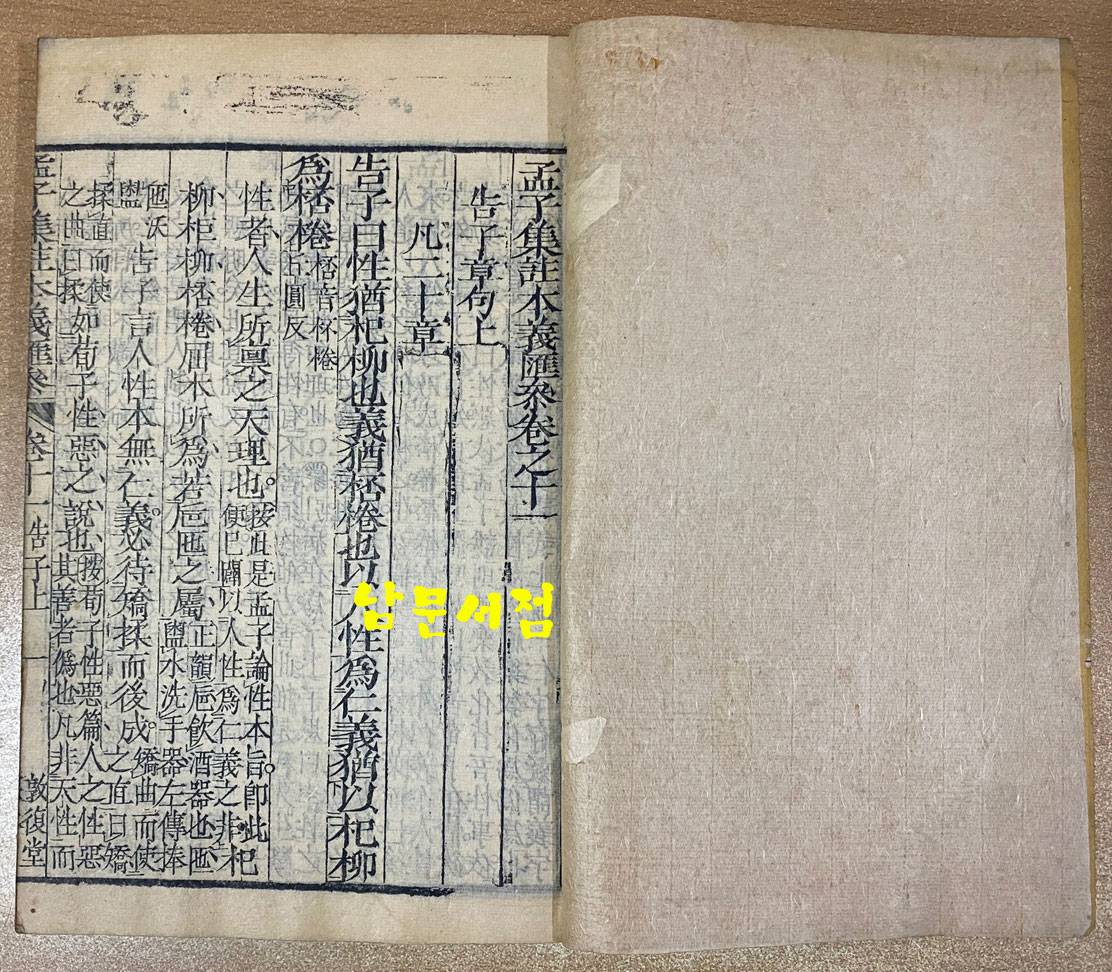 孟子集註本義匯叅卷之十一
告子章句上
凡二十章
告子曰性猶杞柳也義猶桮棬也以人性爲仁義猶以杞柳
爲桮棬桮音杯棬
丘圓反
性者人生所稟之天理也按此是孟子論性本旨卽此
便已闢以人性爲仁義之非杞
柳柜柳桮棬屈木所爲若巵匜之屬正韻巵飲酒器也匜
盥水洗手器左傳捧
匜沃
盥告子言人性本無仁義必待矯揉而後成矯曲而使
之直曰矯
揉直而使
之曲曰揉如荀子性惡之說也按荀子性惡篇人之性惡
其善者僞也凡非天性而
孟子集註本義匯叅 卷十一 告子上 一 敦復堂
남문서점